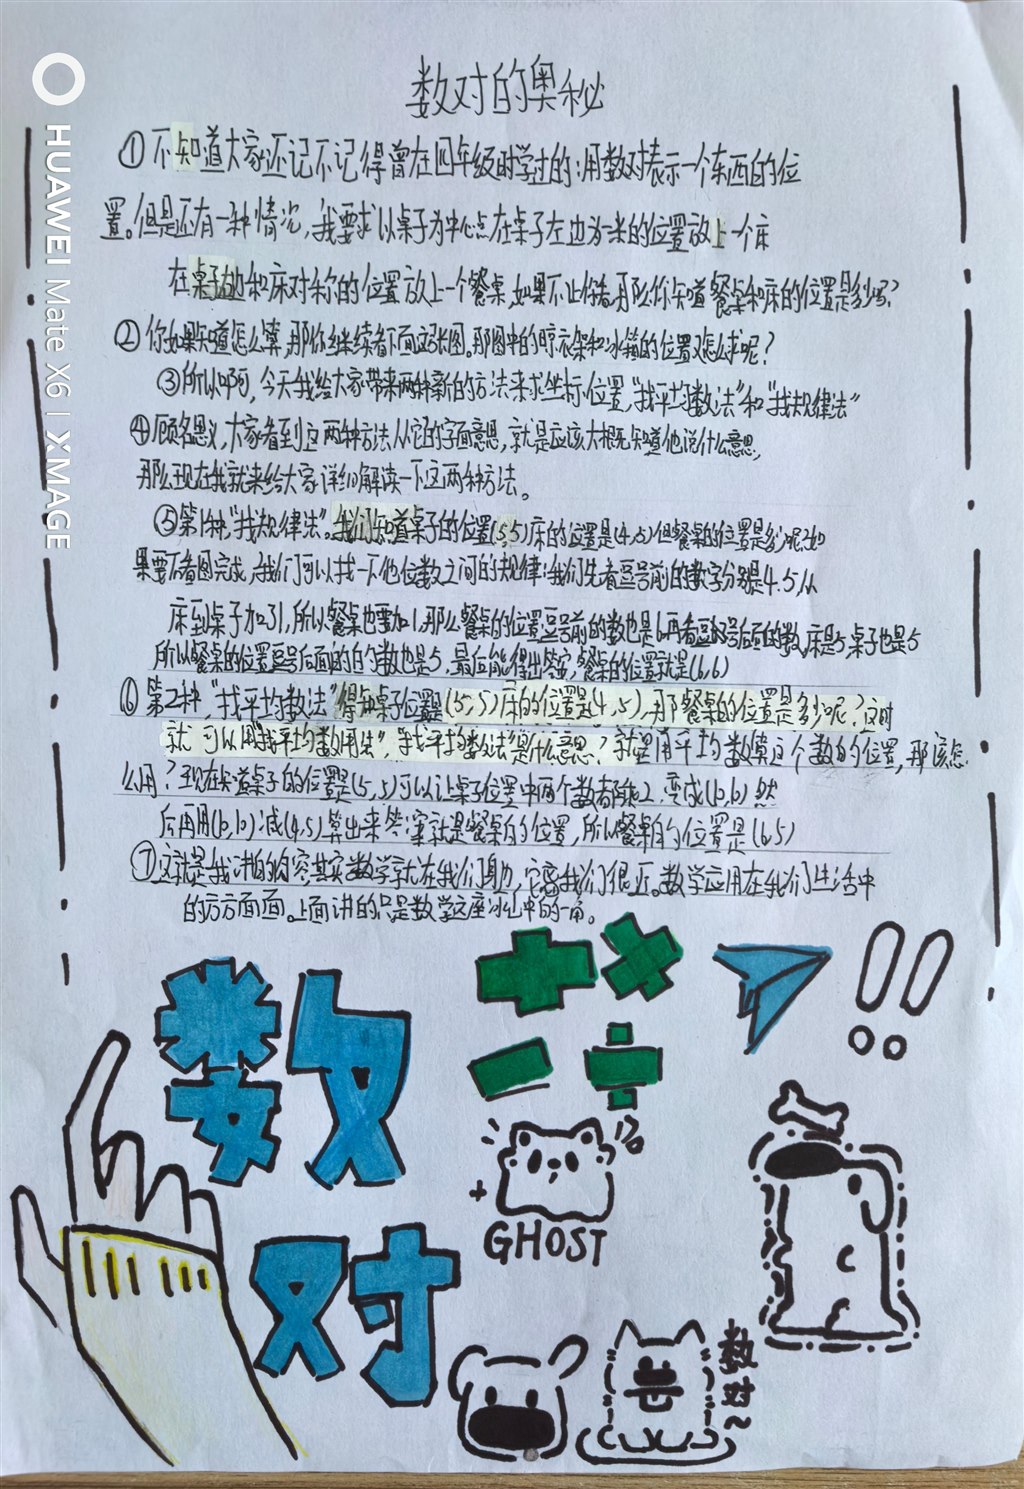 HUAWEI Mate X6 | XMAGE
数对的奥秘
①不知道大家还记不记得曾在四年级时学过的:用数对表示一个东西的位
置。但是还有一种情况,我要求以桌子为中心点在桌子左边为一米的位置放上一个床
在桌子右边和床对称的位置放上一个餐桌,如果不让你看,那么你知道餐桌和床的位置是多少吗?
②你如果知道怎么算,那你继续看下面这张图。那图中的晾衣架和冰箱的位置又怎么求呢?
③所以啊,今天我给大家带来两种新的方法来求坐标位置,“找平均数法”和“找规律法”
④顾名思义,大家看到这两种方法从它的字面意思,就是应该大概知道他说什么意思,
那么现在我就来给大家详细解读一下这两种方法。
⑤第1种“找规律法”。我们知道桌子的位置(5,5)床的位置是(4,5)但餐桌的位置是多少呢?如
果要不看图完成,我们可以找一下他位数之间的规律:我们先看逗号前的数字分别是4.5,从
床到桌子加了1,所以餐桌也要加1,那么餐桌的位置逗号前的数也是6.再看逗号后面的数,床是5,桌子也是5
所以餐桌的位置逗号后面的的数也是5,最后能得出答案,餐桌的位置就是(6,6)
⑥第2种,“找平均数法”得知桌子位置是(5,5)床的位置是(4,5),那餐桌的位置是多少呢?这时
就可以用“找平均数用法”,“找平均数法”是什么意思?就是用平均数算这个数的的位置,那该怎
么用?现在知道桌子的位置是(5,5)可以让桌子位置中两个数都乘2,变成(10,10)然
后再用(10,10)减(4,5)算出来答案就是餐桌的的位置,所以餐桌的位置是(6,5)
⑦这就是我讲的内容,其实数学就在我们身边,它离我们很近。数学应用在我们生活中
的方方面面。上面讲的只是数学这座冰山中的一角。
数
对
GHOST
数对~